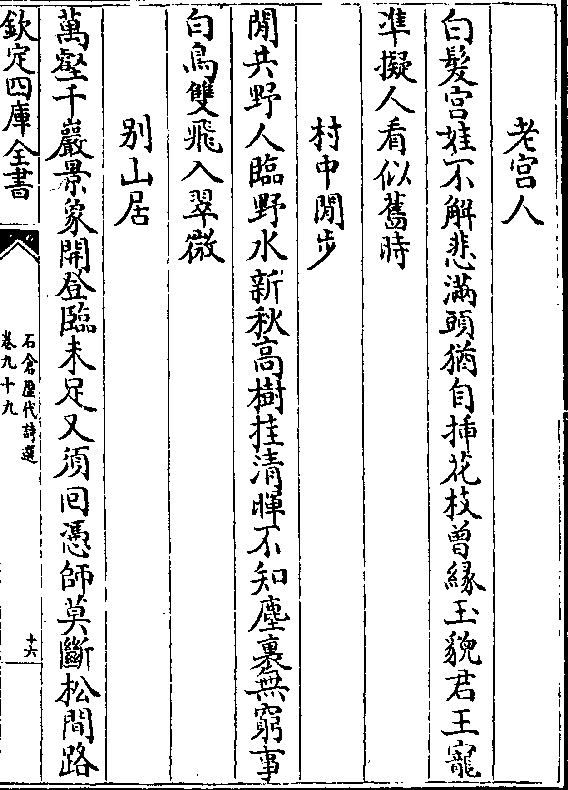 老宫人
白髮宫娃不解悲滿頭猶自挿花枝曾緣玉貌君王寵
凖擬人看似舊時
村中閒步
閒共野人臨野水新秋高樹挂清暉不知塵裏無窮事
白鳥雙飛入翠微
别山居
萬壑千巖景象開登臨未足又須回憑師莫斷松間路
欽定四庫全書
石倉歷代詩選
卷九十九
十六